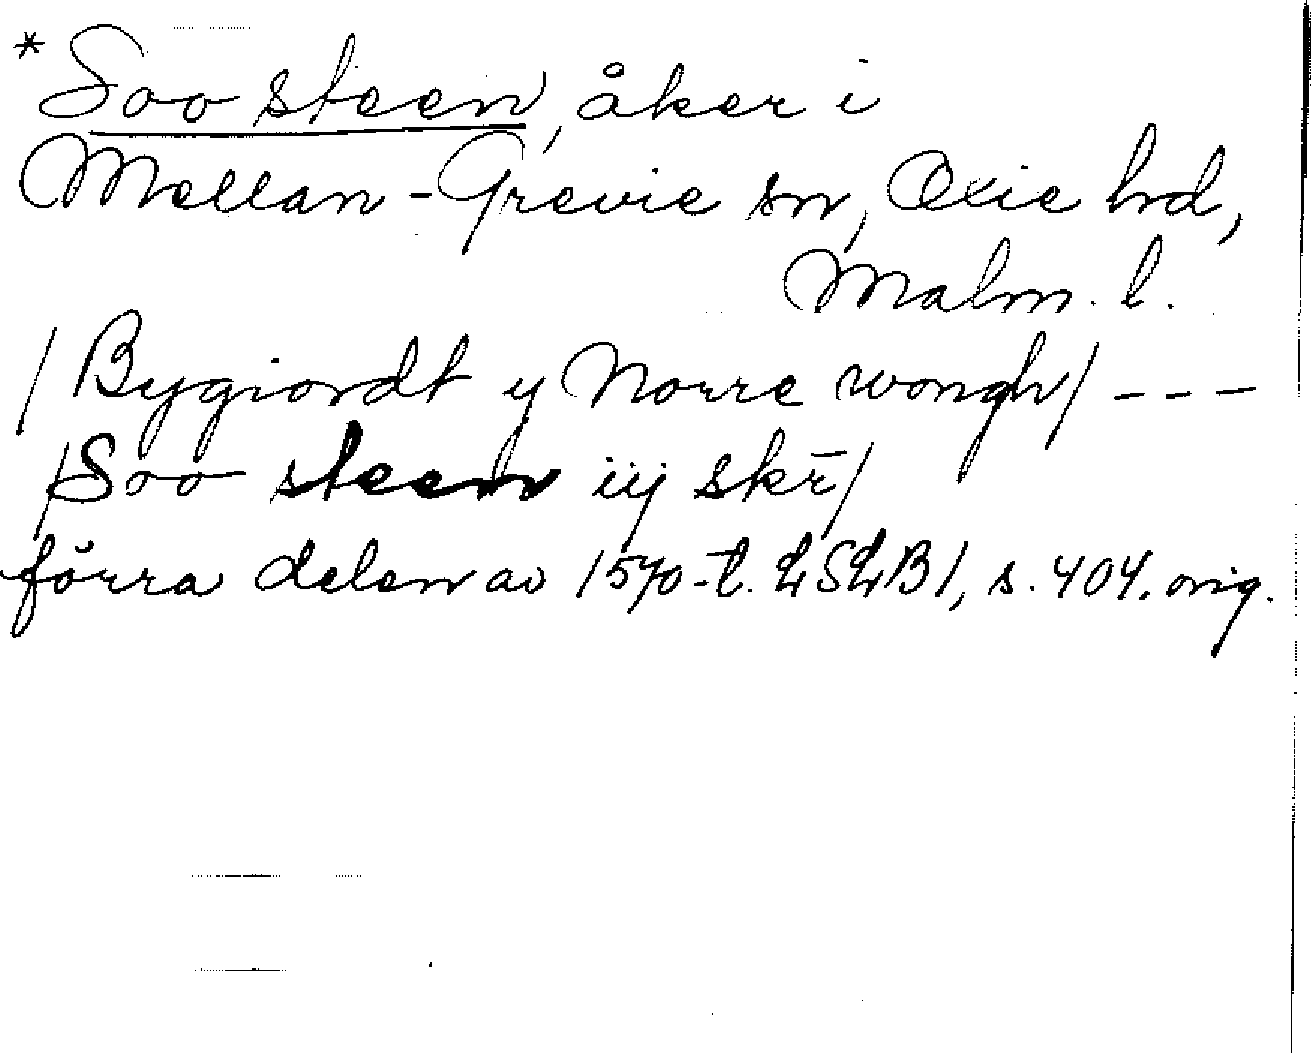 *Soo steen, åker i
Mellan-Grevie sn, Oxie hd,
Malm. l.
/Bygiordt y Norre wongh/ ---
/Soo steen iij skr̄/
förra delen av 1570-t. LSLB1, s. 404. orig.